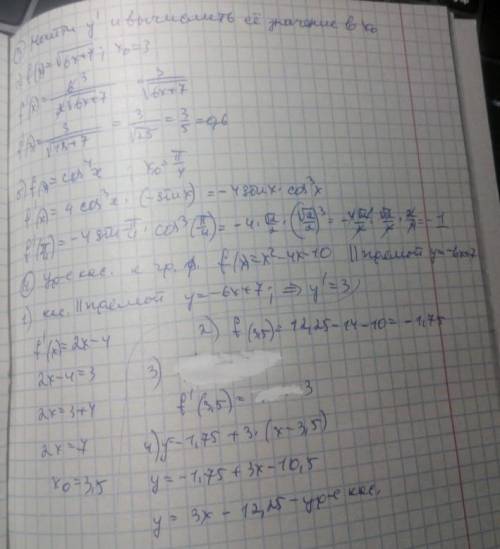 ⑤ Найти y' и вычислить её значение в x₀
1) f(x)=√6x+7; x₀=3
f'(x)= 6 3 / 2√6x+7 = 3/√6x+7
f'(x)= 3/√18+7 = 3/√25 = 3/5 = 0,6
2) f(x)=cos⁴x x₀=π/4
f'(x)= 4 cos³x · (-sinx) = -4 sinx · cos³x
f'(π/4)= -4 sin π/4 · cos³(π/4) = -4 · √2/2 · (√2/2)³ = -4√2/2 · √2/2 · 2/4 = -1
⑥ ур-е кас. к гр. ф. f(x)=x²-4x-10 || прямой y=-6x+7
1) кас. || прямой y=-6x+7; ⇒ y'=3
f'(x)=2x-4
2) f(3,5)=12,25-14-10=-1,75
2x-4=3
3)
f'(3,5)= 3
2x=3+4
2x=7
4) y=-1,75+3·(x-3,5)
x₀=3,5
y=-1,75+3x-10,5
y=3x-12,25 - ур-е кас.